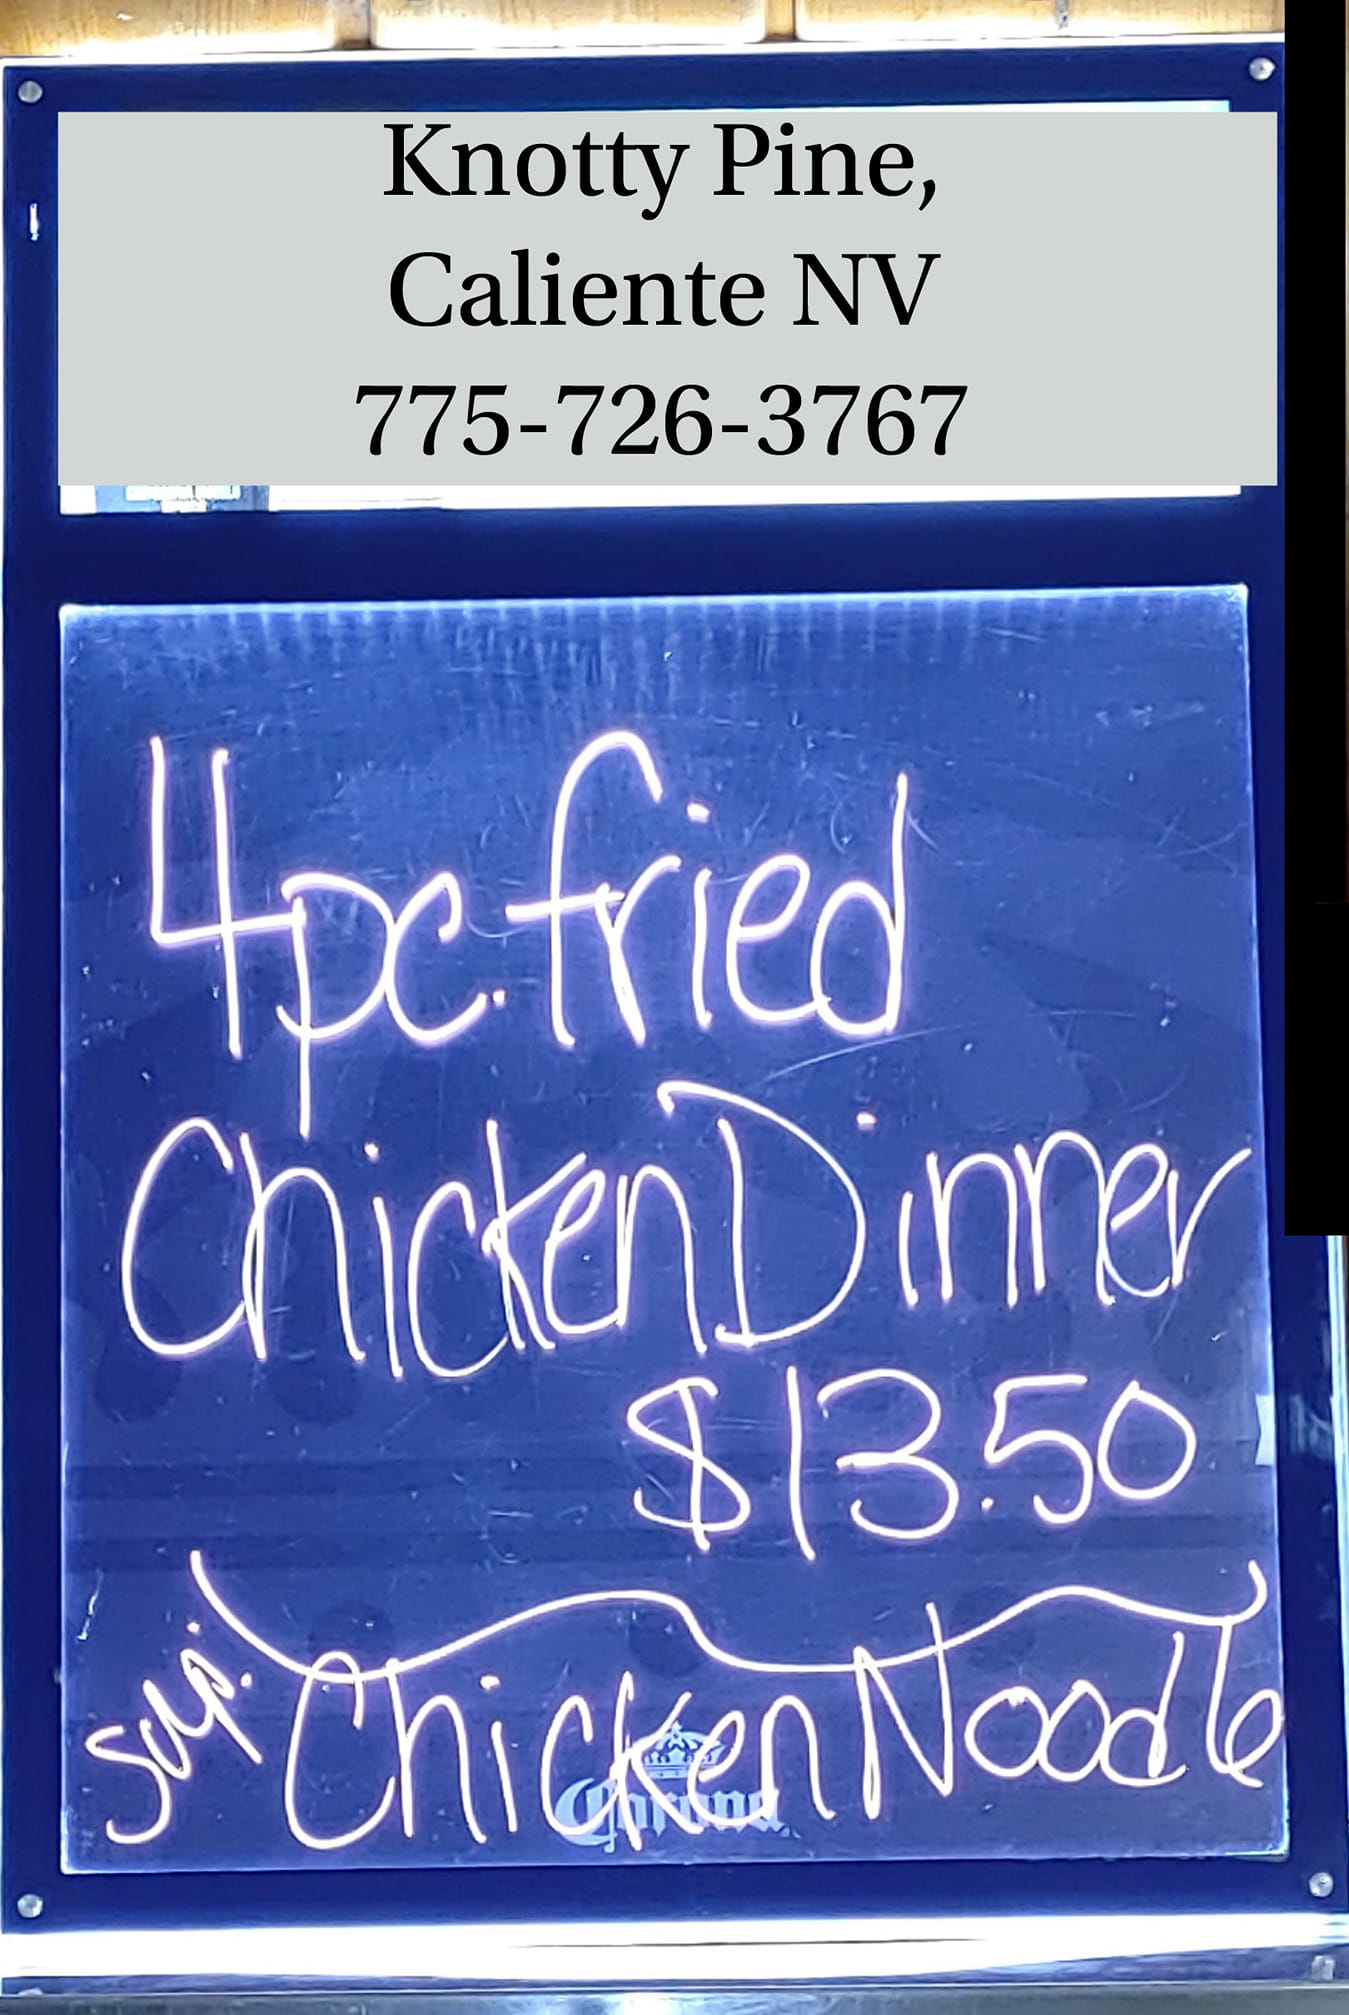 Knotty Pine,
Caliente NV
775-726-3767
4pc. fried
Chicken Dinner
$13.50
Soup: Chicken Noodle
Corona